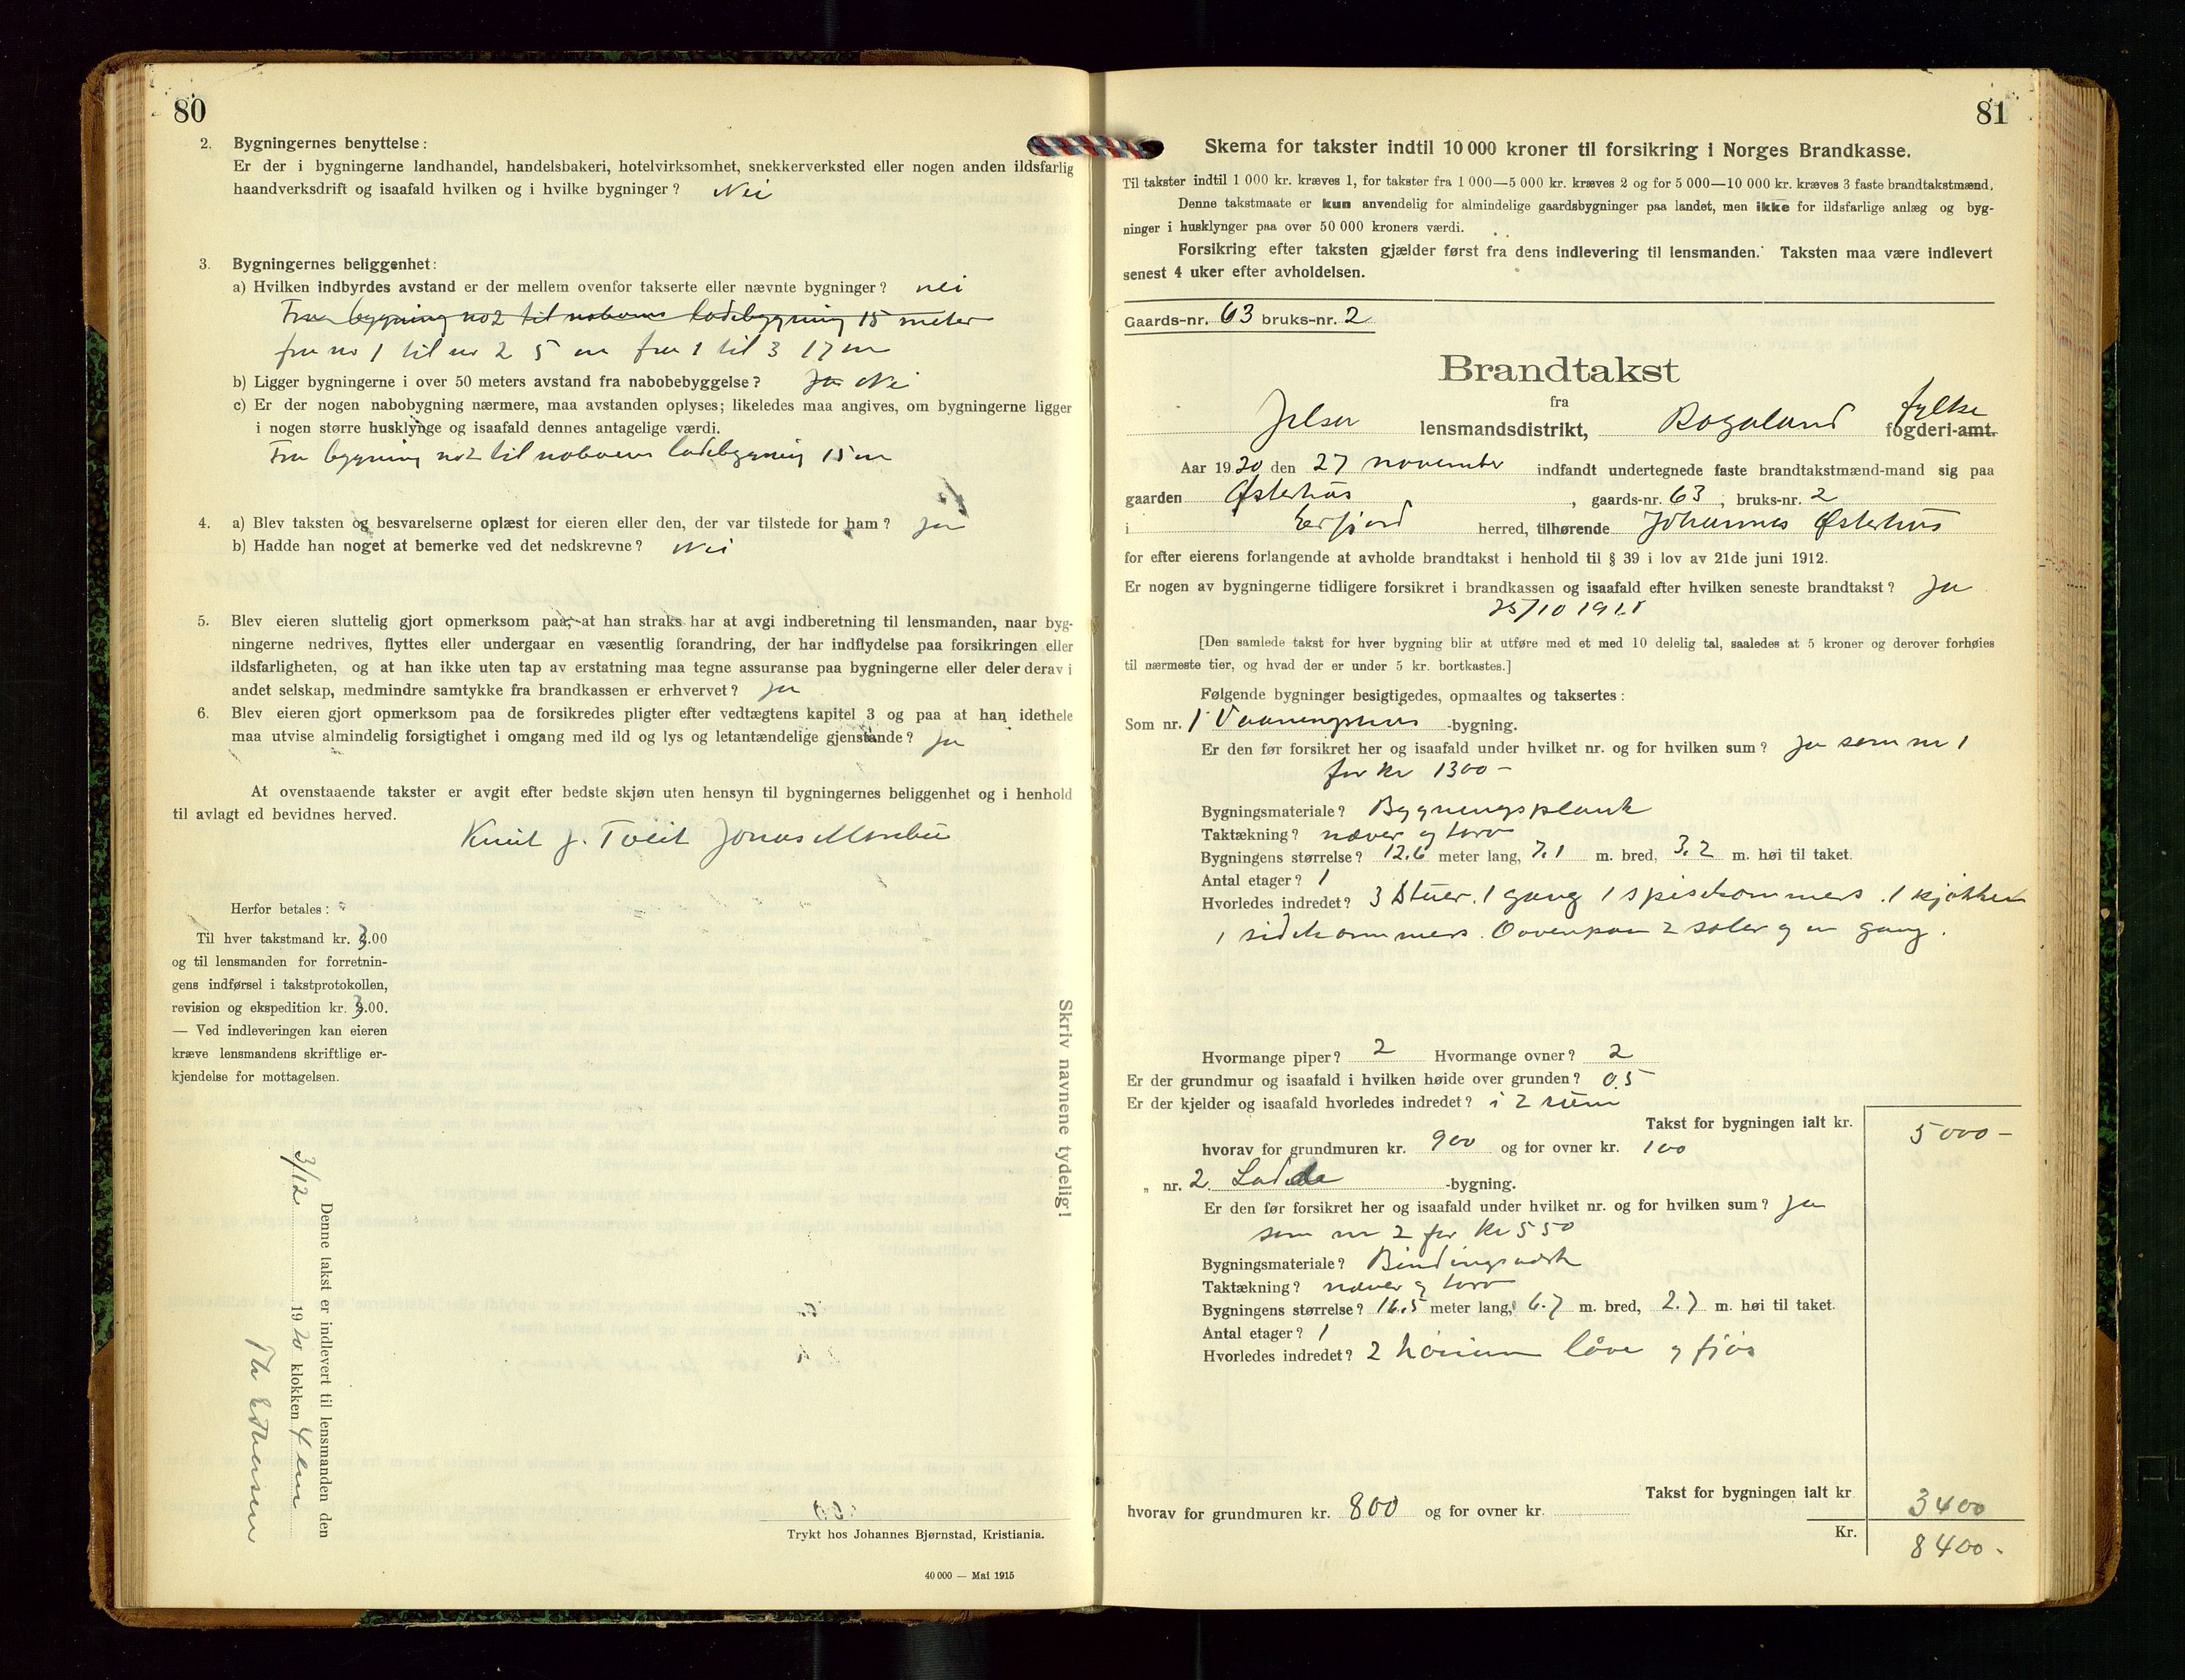 80
2. Bygningernes benyttelse:
Er der i bygningerne landhandel, handelsbakeri, hotelvirksomhet, snekkerverksted eller nogen anden ildsfarlig
haandverksdrift og isaafald hvilken og i hvilke bygninger? Nei
3. Bygningernes beliggenhet:
a) Hvilken indbyrdes avstand er der mellem ovenfor takserte eller nævnte bygninger? nei
Fra bygning no 2 til naboens ladebygning 15 meter
fra nr 1 til nr 2 5 m fra 1 til 3 17 m
b) Ligger bygningerne i over 50 meters avstand fra nabobebyggelse? Ja Nei
c) Er der nogen nabobygning nærmere, maa avstanden oplyses; likeledes maa angives, om bygningerne ligger
i nogen større husklynge og isaafald dennes antagelige værdi.
Fra bygning no 2 til naboens ladebygning 15 m
4. a) Blev taksten og besvarelserne oplæst for eieren eller den, der var tilstede for ham? Ja
b) Hadde han noget at bemerke ved det nedskrevne? Nei
5. Blev eieren sluttelig gjort opmerksom paa, at han straks har at avgi indberetning til lensmanden, naar byg-
ningerne nedrives, flyttes eller undergaar en væsentlig forandring, der har indflydelse paa forsikringen eller
ildsfarligheten, og at han ikke uten tap av erstatning maa tegne assuranse paa bygningerne eller deler derav i
andet selskap, medmindre samtykke fra brandkassen er erhvervet? Ja
6. Blev eieren gjort opmerksom paa de forsikredes pligter efter vedtægtens kapitel 3 og paa at han idethele
maa utvise almindelig forsigtighet i omgang med ild og lys og letantændelige gjenstande? Ja
At ovenstaaende takster er avgit efter bedste skjøn uten hensyn til bygningernes beliggenhet og i henhold
til avlagt ed bevidnes herved.
Knut J. Tveit Jonas
Herfor betales:
Til hver takstmand kr. 3.00
og til lensmanden for forretnin-
gens indførsel i takstprotokollen,
revision og ekspedition kr. 3.00.
— Ved indleveringen kan eieren
kræve lensmandens skriftlige er-
kjendelse for mottagelsen.
Denne takst er indlevert til lensmanden den
3/12 1920 klokken 4 em
Skriv navnene tydelig!
Trykt hos Johannes Bjørnstad, Kristiania.
40 000 — Mai 1915
81
Skema for takster indtil 10 000 kroner til forsikring i Norges Brandkasse.
Til takster indtil 1 000 kr. kræves 1, for takster fra 1 000—5 000 kr. kræves 2 og for 5 000—10 000 kr. kræves 3 faste brandtakstmænd.
Denne takstmaate er kun anvendelig for almindelige gaardsbygninger paa landet, men ikke for ildsfarlige anlæg og byg-
ninger i husklynger paa over 50 000 kroners værdi.
Forsikring efter taksten gjælder først fra dens indlevering til lensmanden. Taksten maa være indlevert
senest 4 uker efter avholdelsen.
Gaards-nr. 63 bruks-nr. 2
Brandtakst
fra
Jelsa lensmandsdistrikt, Rogaland fylke fogderi-amt.
Aar 1920 den 27 november indfandt undertegnede faste brandtakstmænd-mand sig paa
gaarden Østerhus, gaards-nr. 63, bruks-nr. 2
i Erfjord herred, tilhørende Johannes Østerhus
for efter eierens forlangende at avholde brandtakst i henhold til § 39 i lov av 21de juni 1912.
Er nogen av bygningerne tidligere forsikret i brandkassen og isaafald efter hvilken seneste brandtakst? Ja
25/10 191
[Den samlede takst for hver bygning blir at utføre med et med 10 delelig tal, saaledes at 5 kroner og derover forhøies
til nærmeste tier, og hvad der er under 5 kr. bortkastes.]
Følgende bygninger besigtigedes, opmaaltes og taksertes:
Som nr. 1 Vaaningshus -bygning.
Er den før forsikret her og isaafald under hvilket nr. og for hvilken sum? Ja som nr 1
for kr 1300 –
Bygningsmateriale? Bygningsplank
Taktækning? næver og torv
Bygningens størrelse? 12.6 meter lang, 7.1 m. bred, 3.2 m. høi til taket.
Antal etager? 1
Hvorledes indredet? 3 Stuer. 1 gang 1 spisekammers. 1 kjøkken
1 sidekammers. Ovenpaa 2 saler og en gang.
Hvormange piper? 2 Hvormange ovner? 2
Er der grundmur og isaafald i hvilken høide over grunden? 0.5
Er der kjelder og isaafald hvorledes indredet? i 2 rum
Takst for bygningen ialt kr. 5000 –
hvorav for grundmuren kr. 900 og for ovner kr. 100
„ nr. 2 Lade -bygning.
Er den før forsikret her og isaafald under hvilket nr. og for hvilken sum? Ja
som nr 2 for kr 550
Bygningsmateriale? Bindingsverk
Taktækning? næver og torv
Bygningens størrelse? 16.5 meter lang, 6.7 m. bred, 2.7 m. høi til taket.
Antal etager? 1
Hvorledes indredet? 2 høirum låve og fjøs
Takst for bygningen ialt kr 3400
hvorav for grundmuren kr. 800 og for ovner kr.
Kr. 8400 -